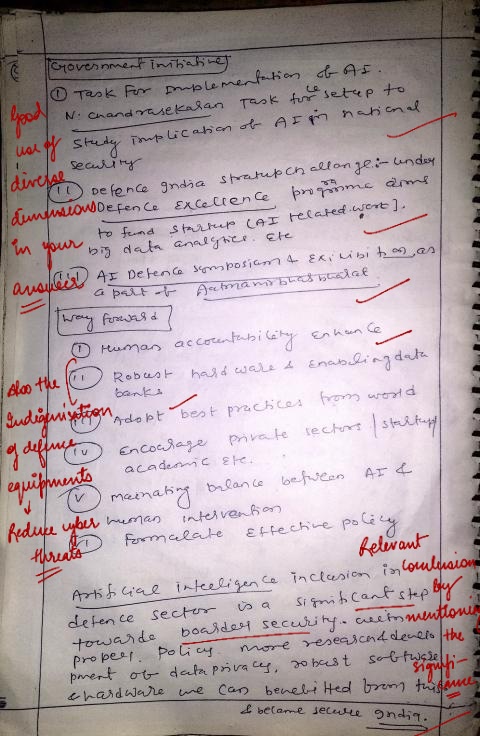 Government Initiative
① Task For Implementation of AI.
N. chandrasekaran Task force setup to
study implication of AI in national
security
(ii) Defence India stratup challange:- under
Defence Excellence programme aims
to fund startup [AI related work].
big data analytics. Etc
(iii) AI Defence somposium & Exihibition, as
a part of Aatmanirbhar bharat.
Way forward
(i) Human accountability enhance
(ii) Robust hardware & Enabling data
banks
(iii) Adopt best practices from world
(iv) Encourage private sectors / startup/
academic etc.
(v) mainating balance between AI &
human intervention
formalate Effective policy
Artificial inteeligence inclusion in
defence sector is a significant step
towards boarder security.
proper policy more research & develo
pment of data privacy, robust software
& hardware we can benebitted from this
& became secure India.
Good
use of
diverse
dimensions
in your
answer
Also the
Indigenisation
of defence
equipments
↓
Reduce cyber
threats
Relevant
Conclusion
by
mentioning
the
signifi-
cance